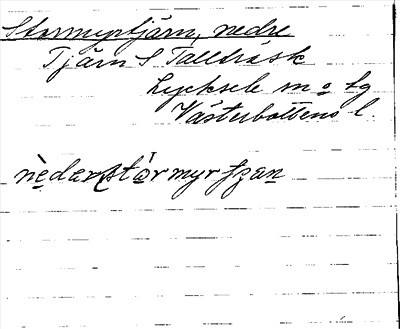 Stormyrtjärn, nedre
Tjärn S Tallträsk
Lycksele m o lg
Västerbottens l.
nèder(stórmyrtjạn